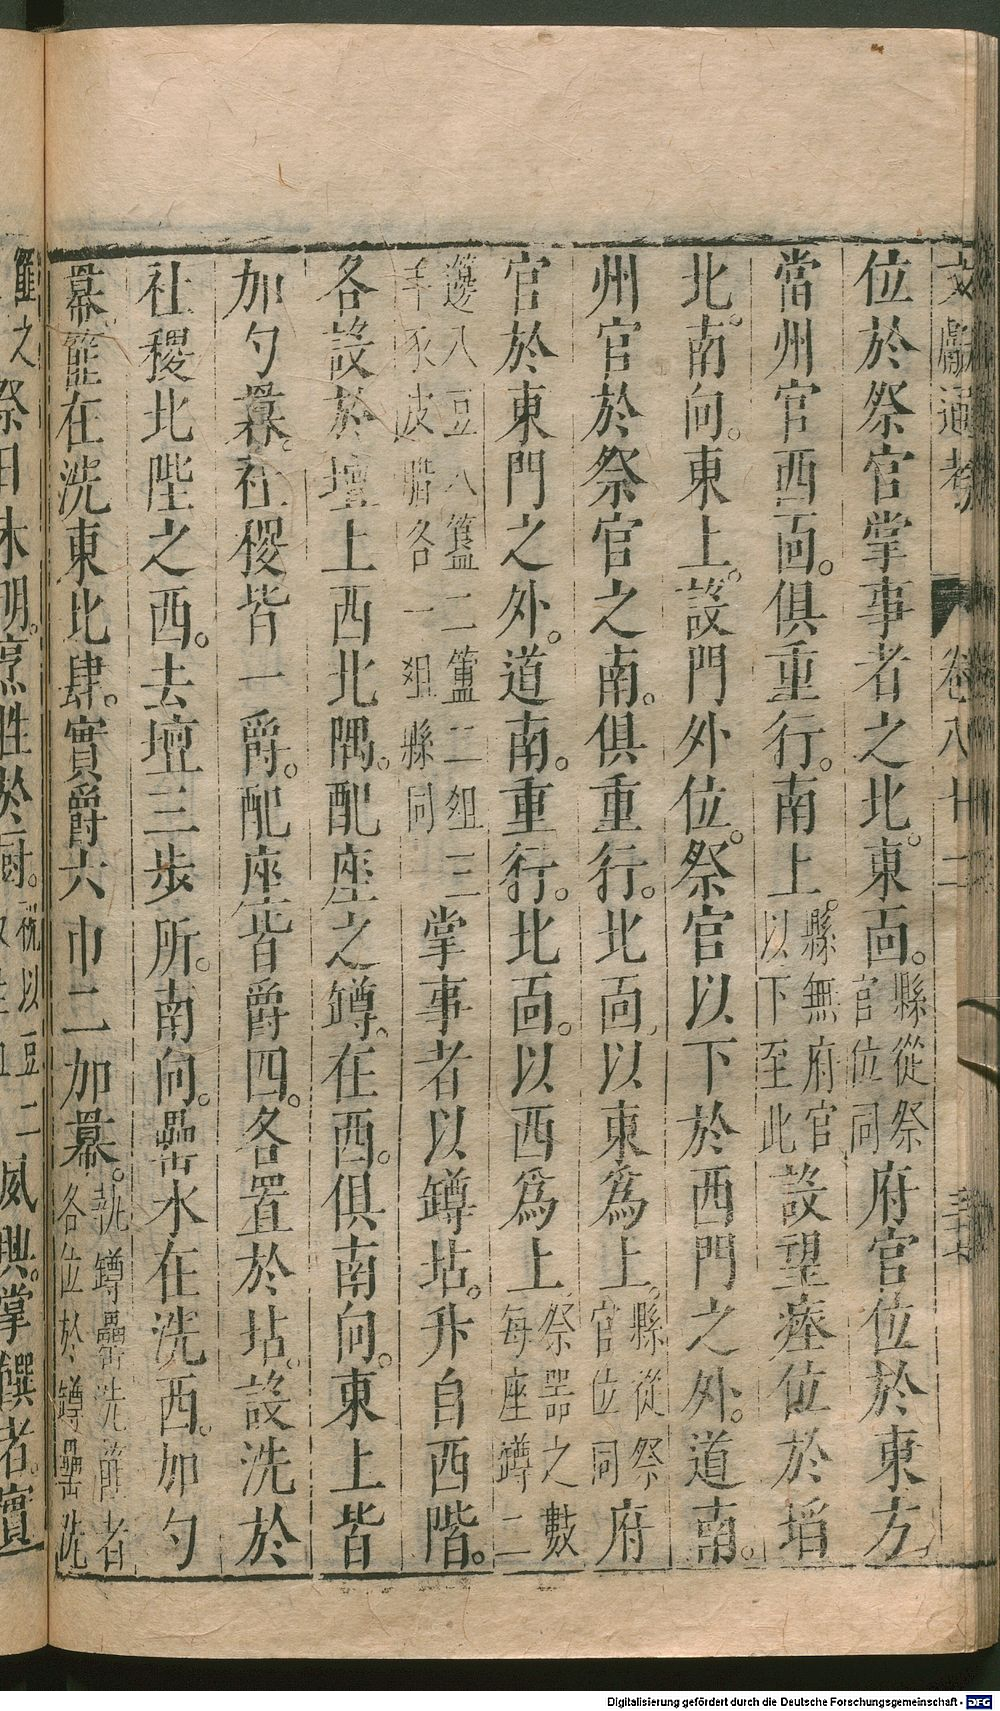 文獻通考 卷八十二
位於祭官掌事者之北。東面。縣從祭官位同府官位於東方。
當州官西面。俱重行。南上。縣無府官以下至此設望瘞位於埳
北。南向。東上。設門外位。祭官以下於西門之外。道南。
州官於祭官之南。俱重行。北面。以東為上。縣從祭官位同府
官於東門之外。道南。重行。北面。以西為上祭器之數每座罇二
籩八豆八簋二簠二俎三羊豕皮腊各一俎縣同掌事者以罇坫。升自西階。
各設於壇上西北隅。配座之罇。在西。俱南向。東上皆
加勺羃。社稷皆一爵。配座皆爵四。各置於坫。設洗於
社稷北陛之西。去壇三步所。南向。罍水在洗西。加勺
羃。篚在洗東北肆。實爵六巾二加羃。執罇罍篚者各位於罇罍洗
篚之祭日未明。烹牲於廚。祝以豆二 興。掌饌者。實
Digitalisierung gefördert durch die Deutsche Forschungsgemeinschaft - DFG